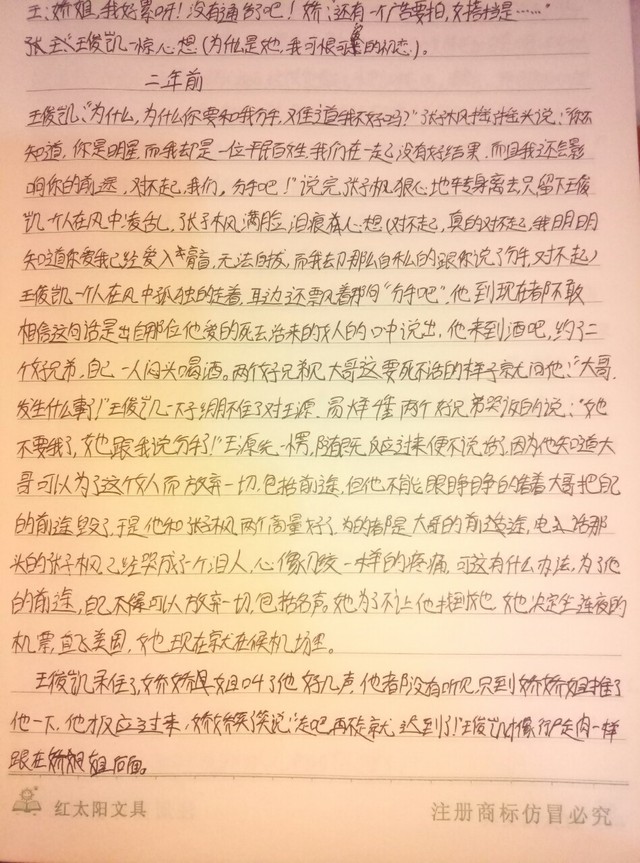 王:娇姐,我好累呀!没有通告了吧!娇:还有一个广告要拍,女搭档是……"
张王"王俊凯一惊心想(为什么是她,我可恨可爱的初恋)。
二年前
王俊凯:"为什么,为什么你要和我分手,难道我不好吗?"张子枫摇摇头说:"你不
知道,你是明星,而我却是一位平民百姓,我们在一起没有好结果,而且我还会影
响你的前途,对不起,我们,分手吧!"说完,张子枫狠心地转身离去,只留下王俊
凯一个人在风中凌乱,张子枫满脸泪痕,心想(对不起,真的对不起,我明明
知道你爱我已经爱入骨育,无法自拔,而我却那么自私的跟你说了分手,对不起)
王俊凯一个人在风中孤独的走着,耳边还飘着那句"分手吧",他到现在都不敢
相信这句话是出自那位他爱的死去活来的女人的口中说出,他来到酒吧,约了二
个好兄弟,自己一人闷头喝酒。两个好兄弟见大哥这要死不活的样子就问他:"大哥,
发生什么事了!"王俊凯一下子绷不住了对王源、易烊千玺两个好兄弟哭诉的说:"她
不要我了,她跟我说分手了!"王源先一愣,随即反应过来便不说话了,因为他知道大
哥可以为了这个女人而放弃一切,包括前途,但他不能眼睁睁的看着大哥把自己
的前途毁了,于是他和张子枫两个商量好了,为的都是大哥的前途,电话那
头的张子枫已经哭成了一个泪人,心像刀绞一样的疼痛,可这有什么办法,为了他
的前途,自己不得可以放弃一切,包括名声。她为了不让他找到她,她决定坐连夜的
机票,直飞美国,她现在就在候机坊里。
王俊凯呆住了,娇娇姐姐叫了他好几声,他都没有听见,只到娇娇姐推了
他一下,他才反应过来,娇娇笑笑说:"走吧,再不走就迟到了!"王俊凯才像行尸走肉一样
跟在娇娇姐后面。
红太阳文具
注册商标仿冒必究